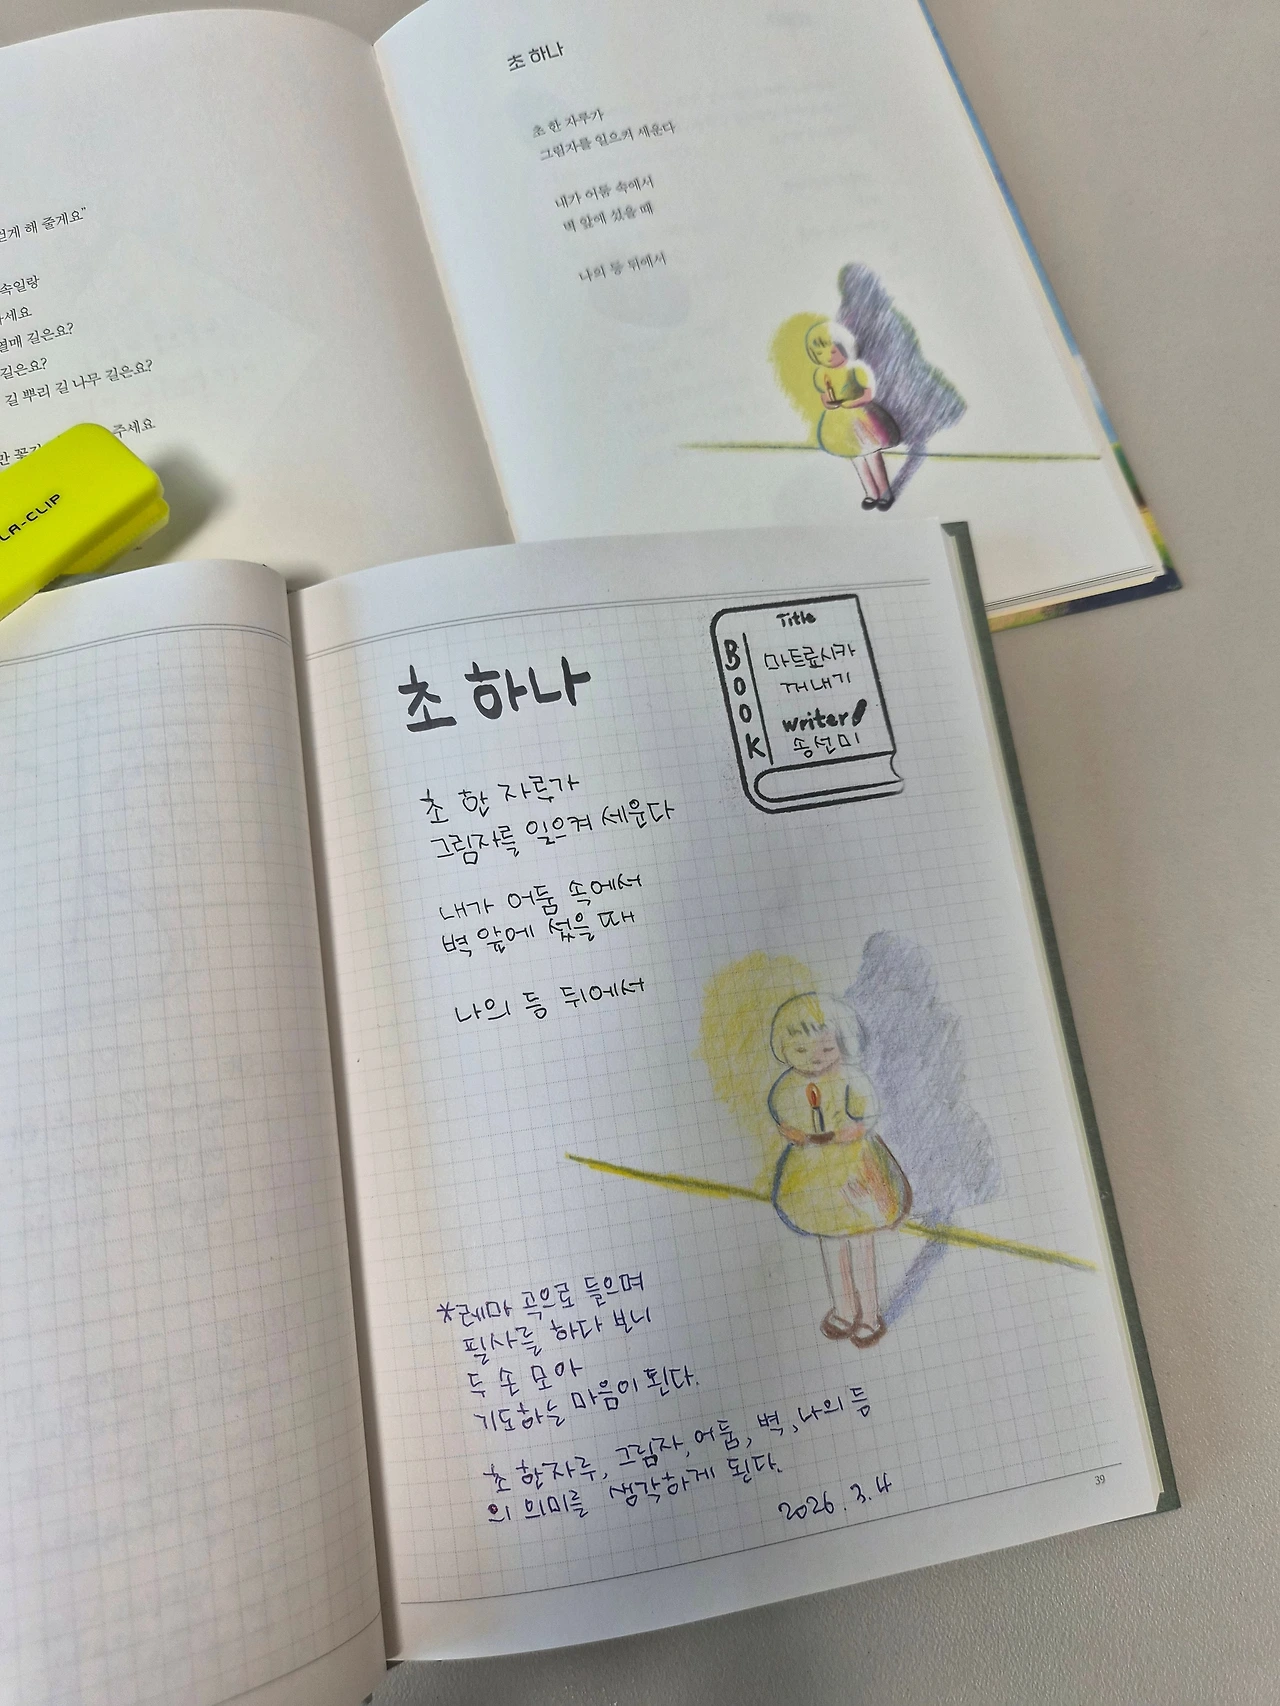 초 하나
초 한 자루가
그림자를 일으켜 세운다
내가 어둠 속에서
벽 앞에 섰을 때
나의 등 뒤에서
해 줄게요"
속일랑
세요
열매 길은요?
길은요?
길 뿌리 길 나무 길은요?
주세요
LA-CLIP
초 하나
BOOK
Title
마트료시카
꺼내기
writer
송선미
초 한 자루가
그림자를 일으켜 세운다
내가 어둠 속에서
벽 앞에 섰을 때
나의 등 뒤에서
*레마 곡으로 들으며
필사를 하다 보니
두 손 모아
기도하는 마음이 된다.
초 한자루, 그림자, 어둠, 벽, 나의 등
의 의미를 생각하게 된다.
2026. 3. 4
39